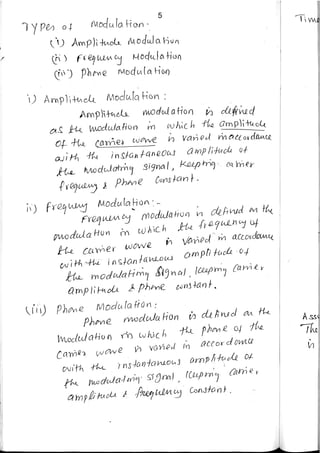 5
Types of Modulation -
(i) Amplitude Modulation
(ii) Frequency Modulation
(iii) Phone Modulation
i) Amplitude Modulation :
Amplitude modulation is defined
as the modulation in which the amplitude
of the carrier wave is varied in accordance
with the instantaneous amplitude of
the modulating signal, keeping carrier
frequency & Phone constant.
ii) Frequency Modulation :-
Frequency modulation is defined as the
modulation in which the frequency of
the carrier wave is varied in accordance
with the instantaneous amplitude of
the modulating signal, keeping carrier
amplitude & phone constant.
(iii) Phone Modulation :
Phone modulation is defined as the
modulation in which the phone of the
Carrier wave is varied in accordance
with the instantaneous amplitude of
the modulating signal, keeping carrier
amplitude & frequency constant.
Time
The